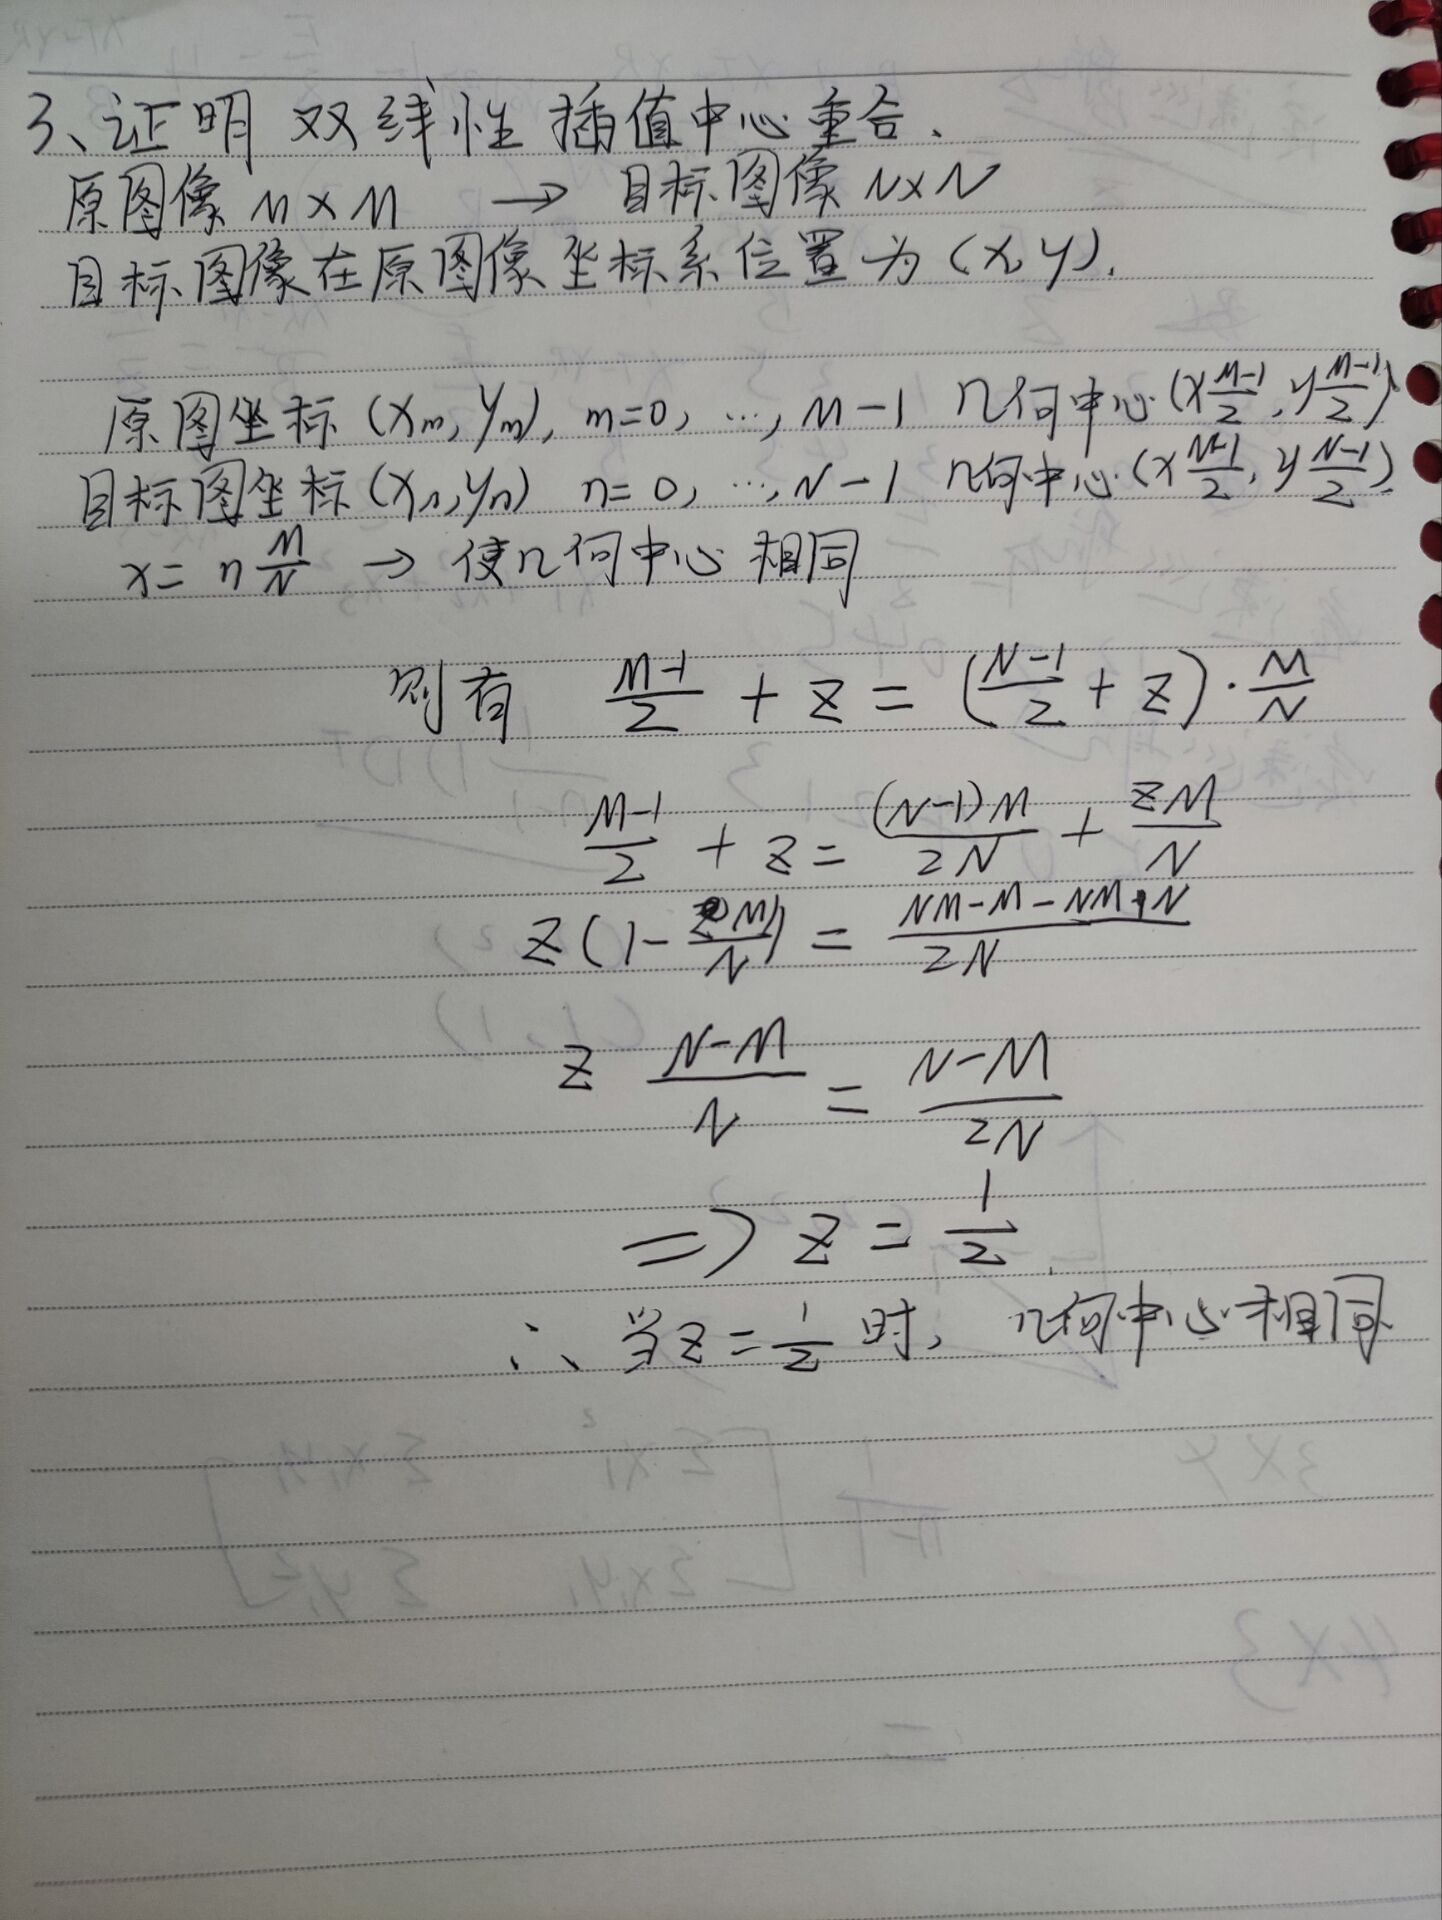 3、证明 双线性插值中心重合.
原图像 M×M → 目标图像 N×N
目标图像在原图像坐标系位置为 (x,y).
原图坐标 (xₘ, yₘ), m=0, …, M-1 几何中心 (x_{\frac{M-1}{2}}, y_{\frac{M-1}{2}})
目标图坐标 (xₙ, yₙ) n=0, …, N-1 几何中心 (x_{\frac{N-1}{2}}, y_{\frac{N-1}{2}})
x = n\frac{M}{N} → 使几何中心 相同
则有 \frac{M-1}{2} + z = (\frac{N-1}{2} + z)·\frac{M}{N}
\frac{M-1}{2} + z = \frac{(N-1)M}{2N} + \frac{zM}{N}
z(1-\frac{M}{N}) = \frac{NM-M-NM+N}{2N}
z \frac{N-M}{N} = \frac{N-M}{2N}
⇒ z = \frac{1}{2}
∴ 当z=\frac{1}{2} 时, 几何中心相同